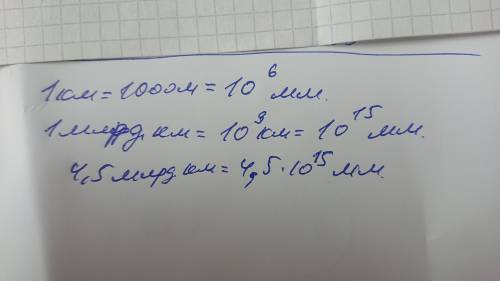 1 км = 1000 м = 10⁶ мм.
1 млрд. км = 10⁹ км = 10¹⁵ мм.
4,5 млрд. км = 4,5 · 10¹⁵ мм.